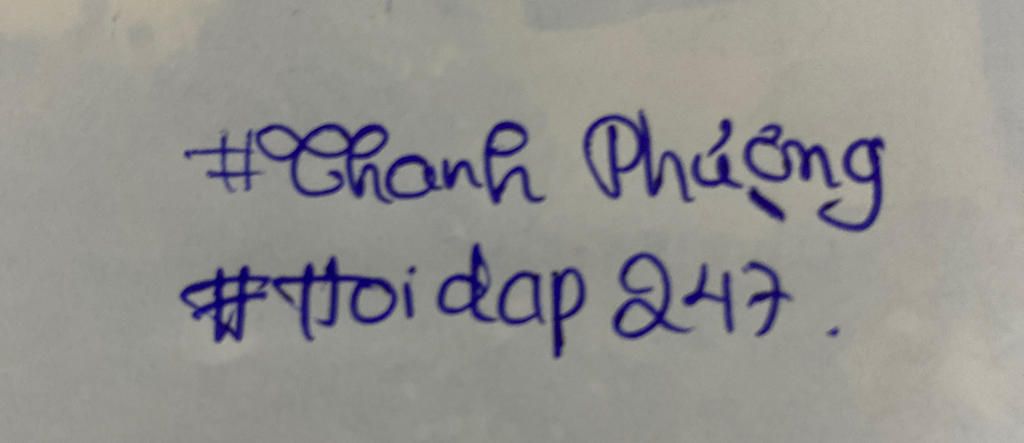 #Thanh Phượng
#Hoidap247.